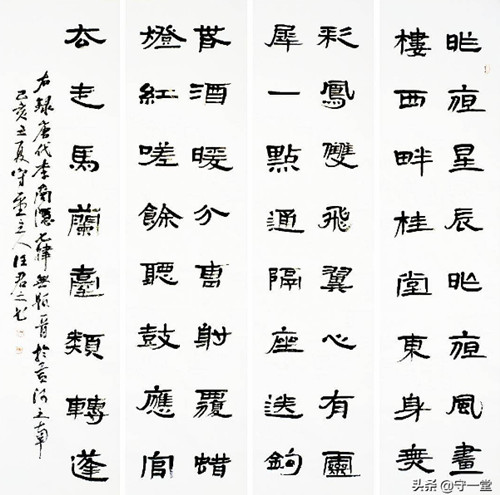 昨夜星辰昨夜風畫
樓西畔桂堂東身無
彩鳳雙飛翼心有靈
犀一點通隔座送鉤
春酒暖分曹射覆蜡
燈紅嗟餘聽鼓應官
去走馬蘭臺類轉蓬
右錄唐代李商隱七律無題一首於黃河之南
己亥立夏守主人汪君之書
头条 @守一堂